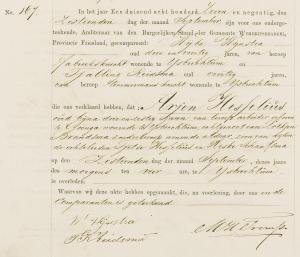 No. 167.
In het jaar Een duizend acht honderd Zeven en negentig, den
Zestienden dag der maand September, zijn voor ons onderge-
teekende, Ambtenaar van den Burgerlijken Stand der Gemeente WONSERADEEL,
Provincie Friesland, gecompareerd: Wijbe Hijnstra
oud drie en veertig jaren, van beroep
Fabrieksknecht wonende te IJsbrechtum en
Tjalling Reidsma oud veertig jaren,
van beroep Timmermansknecht wonende te IJsbrechtum
die ons verklaard hebben, dat Arjen Hespelius
oud bijna drie en zestig jaren van beroep arbeider geboren
te Goënga wonende te IJsbrechtum, echtgenoot van
zoon van wijlen
de echtelieden Hespelius en
op den Zestienden dag der maand September, dezes jaars
des morgens ten vier ure, te IJsbrechtum
is overleden.
Waarvan wij deze akte hebben opgemaakt, die, na voorlezing, door ons en de
Comparanten is geteekend
W Hijnstra
T Reidsma